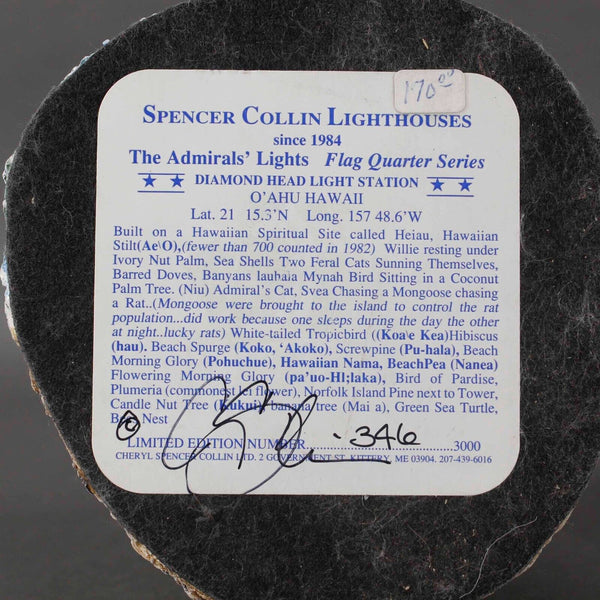 170.00
SPENCER COLLIN LIGHTHOUSES
since 1984
The Admirals' Lights Flag Quarter Series
★ ★ DIAMOND HEAD LIGHT STATION ★ ★
O'AHU HAWAII
Lat. 21 15.3'N Long. 157 48.6'W
Built on a Hawaiian Spiritual Site called Heiau, Hawaiian
Stilt(Ae\O),(fewer than 700 counted in 1982) Willie resting under
Ivory Nut Palm, Sea Shells Two Feral Cats Sunning Themselves,
Barred Doves, Banyans laubala Mynah Bird Sitting in a Coconut
Palm Tree. (Niu) Admiral's Cat, Svea Chasing a Mongoose chasing
a Rat..(Mongoose were brought to the island to control the rat
population...did work because one sleeps during the day the other
at night..lucky rats) White-tailed Tropicbird ((Koa\e Kea)Hibiscus
(hau). Beach Spurge (Koko, 'Akoko), Screwpine (Pu-hala), Beach
Morning Glory (Pohuchue), Hawaiian Nama, BeachPea (Nanea)
Flowering Morning Glory (pa'uo-HI;laka), Bird of Pardise,
Plumeria (commonest lei flower), Norfolk Island Pine next to Tower,
Candle Nut Tree (Kukui) banana tree (Mai a), Green Sea Turtle,
Nest
©
LIMITED EDITION NUMBER...346...3000
CHERYL SPENCER COLLIN LTD. 2 GOVERNMENT ST. KITTERY, ME 03904. 207-439-6016